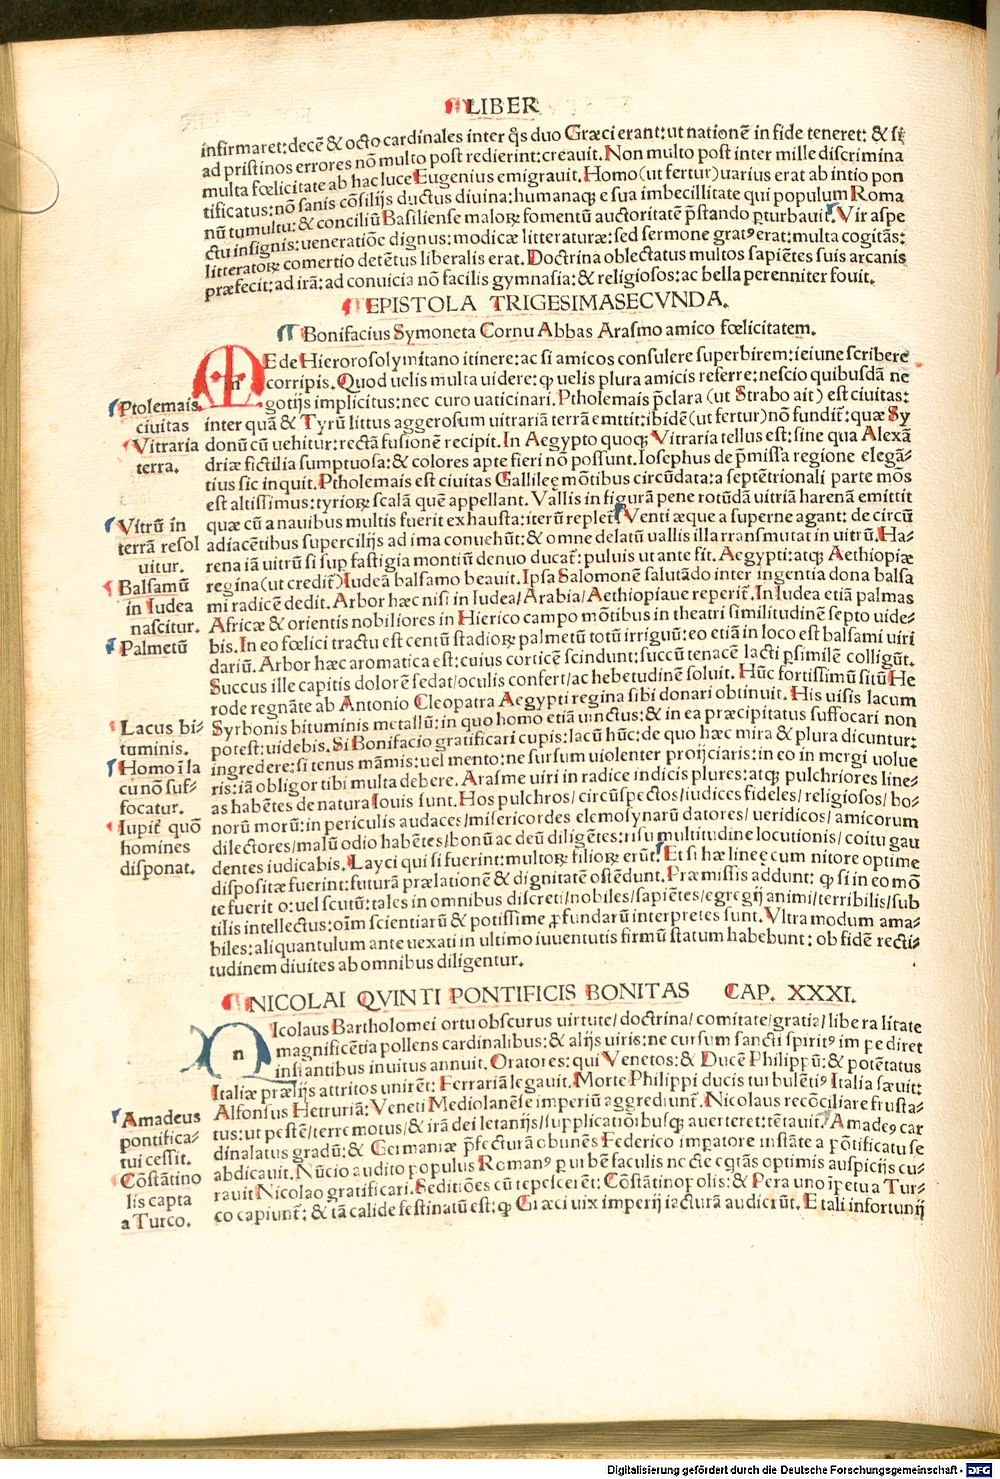 LIBER
infirmaret: decē & octo cardinales inter q̄s duo Græci erant: ut nationē in fide teneret: & si
ad pristinos errores nō multo post redierint: creauit. Non multo post inter mille discrimina
multa fœlicitate ab hac luce Eugenius emigrauit. Homo (ut fertur) uarius erat ab intio pon
tificatus: nō sanis cōsilijs ductus diuina: humanaq; e sua imbecillitate qui populum Roma
nū tumultu: & conciliū Basiliense maloꝝ fomentū auctoritatē p̄stando ꝑturbauit. Vir aspe
ctu insignis: ueneratiōe dignus: modicæ litteraturæ: sed sermone gratꝰ erat: multa cogitās:
litteratoꝝ comertio detētus liberalis erat. Doctrina oblectatus multos sapiētes suis arcanis
præfecit: ad irā: ad conuicia nō facilis gymnasia: & religiosos: ac bella perenniter fouit.
EPISTOLA TRIGESIMASECVNDA.
Bonifacius Symoneta Cornu Abbas Arasmo amico fœlicitatem.
m
E de Hierorosolymitano itinere: ac si amicos consulere superbirem: ieiune scribere
corripis. Quod uelis multa uidere: ꝙ uelis plura amicis referre: nescio quibusdā ne
gotijs implicitus: nec curo uaticinari. Ptholemais p̄clara (ut Strabo ait) est ciuitas:
inter quā & Tyrū littus aggerosum uitrariā terrā emittit: ibidē (ut fertur) nō fundit̄: quæ Sy
donū cū uehitur: rectā fusionē recipit. In Aegypto quoq; Vitraria tellus est: sine qua Alexā
driæ fictilia sumptuosa: & colores apte fieri nō possunt. Iosephus de p̄missa regione elegā-
tius sic inquit. Ptholemais est ciuitas Gallileę mōtibus circūdata: a septētrionali parte mōs
est altissimus: tyrioꝝ scalā quē appellant. Vallis in figurā pene rotūdā uitriā harenā emittit
quæ cū a nauibus multis fuerit exhausta: iterū replet̄. Venti æque a superne agant: de circū
adiacētibus supercilijs ad ima conuehūt: & omne delatū uallis illa transmutat in uitrū. Ha-
rena iā uitrū si sup fastigia montiū denuo ducat̄: puluis ut ante fit. Aegypti: atq; Aethiopiæ
regina (ut credit̄) Iudeā balsamo beauit. Ipsa Salomonē salutādo inter ingentia dona balsa
mi radicē dedit. Arbor hæc nisi in Iudea/ Arabia/ Aethiopiaue reperit̄. In Iudea etiā palmas
Africæ & orientis nobiliores in Hierico campo mōtibus in theatri similitudinē septo uide-
bis. In eo fœlici tractu est centū stadioꝝ palmetū totū irriguū: eo etiā in loco est balsami uiri
dariū. Arbor hæc aromatica est: cuius corticē scindunt: succū tenacē lacti ꝑsimilē colligūt.
Succus ille capitis dolorē sedat/ oculis confert/ ac hebetudinē soluit. Hūc fortissimū sitū He
rode regnāte ab Antonio Cleopatra Aegypti regina sibi donari obtinuit. His uisis lacum
Syrbonis bituminis metallū: in quo homo etiā uinctus: & in ea præcipitatus suffocari non
potest: uidebis. Si Bonifacio gratificari cupis: lacū hūc: de quo hæc mira & plura dicuntur:
ingredere: si tenus māmis: uel mento: ne sursum uiolenter proijciaris: in eo in mergi uolue
ris: iā obligor tibi multa debere. Arasme uiri in radice indicis plures: atq; pulchriores line-
as habētes de natura Iouis sunt. Hos pulchros/ circūspectos/ iudices fideles/ religiosos/ bo-
norū morū: in periculis audaces/ misericordes elemosynarū datores/ ueridicos/ amicorum
dilectores/ malū odio habētes/ bonū ac deū diligētes: risu multitudine locutionis/ coitu gau
dentes iudicabis. Layci qui si fuerint: multoꝝ filioꝝ erūt. Et si hæ lineę cum nitore optime
dispositæ fuerint: futurā prælationē & dignitatē ostēdunt. Præmissis addunt: ꝙ si in eo mō
te fuerit o: uel scutū: tales in omnibus discreti/ nobiles/ sapiētes/ egregij animi/ terribilis/ sub
tilis intellectus: oīm scientiarū & potissime ꝓfundarū interpretes sunt. Vltra modum ama-
biles: aliquantulum ante uexati in ultimo iuuentutis firmū statum habebunt: ob fidē recti-
tudinem diuites ab omnibus diligentur.
Ptolemais
ciuitas
Vitraria
terra.
Vitrū in
terrā resol
uitur.
Balsamū
in Iudea
nascitur.
Palmetū
Lacus bi-
tuminis.
Homo ī la
cu nō suf-
focatur.
Iupit̄ quō
homines
disponat.
NICOLAI QVINTI PONTIFICIS BONITAS CAP. XXXI.
n
Icolaus Bartholomei ortu obscurus uirtute/ doctrina/ comitate/ gratia/ liberalitate
magnificētia pollens cardinalibus: & alijs uiris: ne cursum sancti spiritꝰ impediret
instantibus inuitus annuit. Oratores: qui Venetos: & Ducē Philippū: & potētatus
Italiæ prælijs attritos unirēt: Ferrariā legauit. Morte Philippi ducis turbulētiꝰ Italia sæuit:
Alfonsus Hetruriā: Veneti Mediolanēse imperiū aggrediunt̄. Nicolaus recōciliare frusta-
tus: ut pestē/ terremotus/ & irā dei letanijs/ supplicatiōibusq; auerteret: tētauit. Amadeꝰ car
dinalatus gradū: & Germaniæ p̄fecturā obtinēs Federico impatore instāte a pōtificatu se
abdicauit. Nūcio audito populus Romanꝰ ꝑ urbē faculis nocte egtās optimis auspicijs cu-
rauit Nicolao gratificari. Seditiōes cū tepescerēt: Cōstātinopolis: & Pera uno īpetu a Tur-
co capiunt̄: & tā calide festinatū est: ꝙ Græci uix imperij iacturā audierūt. E tali infortunij
Amadeus
pontifica-
tui cessit.
Cōstātino
lis capta
a Turco.
Digitalisierung gefördert durch die Deutsche Forschungsgemeinschaft - DFG